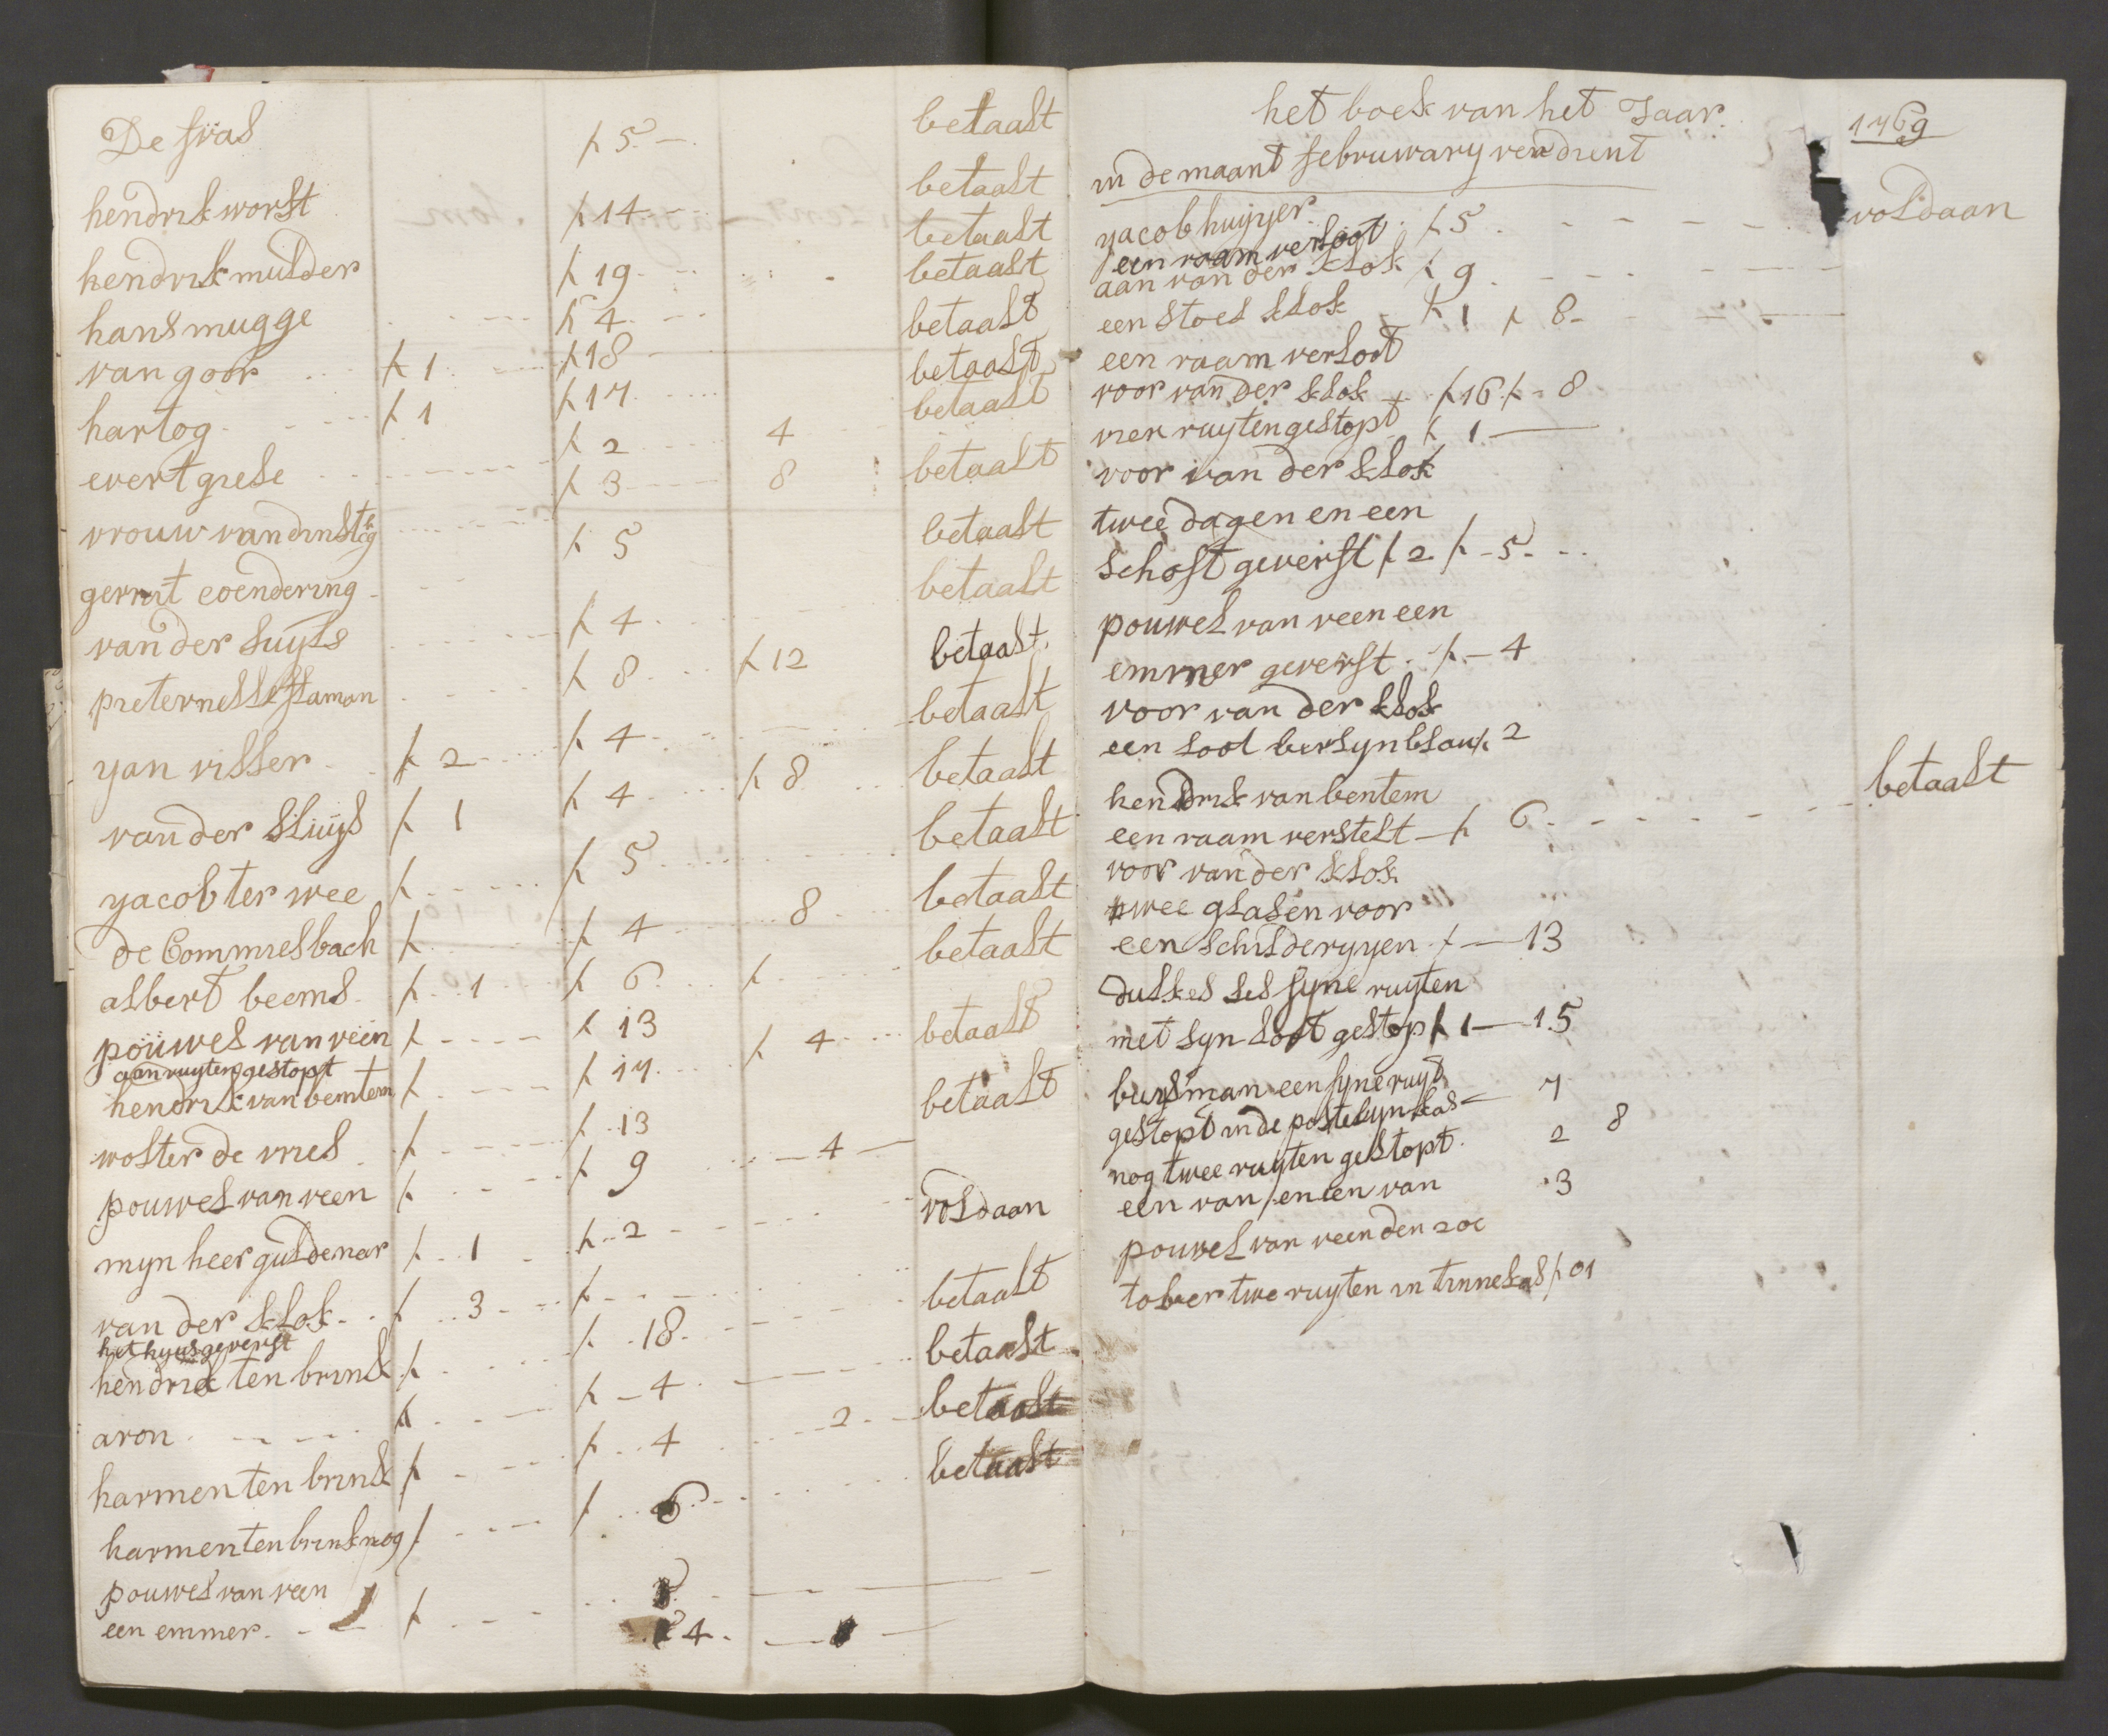 De fras ƒ 5 - betaalt
hendrik worst ƒ 14 betaalt
hendrik mulder ƒ 19 betaalt
hans mugge ƒ 4 betaalt
van goor ƒ 1 ƒ 18 betaalt
hartog ƒ 1 ƒ 17 betaalt
evert grese ƒ 2 4 betaalt
vrouw van ƒ 3 8 betaalt
gerrit eoendering ƒ 5 betaalt
van der suyls ƒ 4 betaalt
ƒ 8 ƒ 12 betaalt
yan visser ƒ 2 ƒ 4 betaalt
van der sluys ƒ 1 ƒ 4 ƒ 8 betaalt
yacob ter wee ƒ ƒ 5 betaalt
de Commiesbach ƒ ƒ 4 8 betaalt
albert beems ƒ 1 ƒ 6 ƒ betaalt
pouwel van veen ƒ ƒ 13
aan ruyten gestopt
hendrik van bemtem ƒ ƒ 17 ƒ 4 betaalt
wolter de vries ƒ ƒ 13 betaalt
pouwel van veen ƒ ƒ 9 4
myn heer guldenar ƒ 1 ƒ 2 voldaan
van der klok ƒ 3 ƒ betaalt
het huys geverft
hendrick ten brink ƒ ƒ 18 betaalt
aron ƒ ƒ 4 betaalt
harmen ten brink ƒ ƒ 4 2 betaalt
harmen ten brink nog ƒ ƒ 6
pouwel van veen
een emmer ƒ 4
het boek van het Jaar 1769
in de maant februwary verdient
yacob huyyer ƒ 5 voldaan
een raam verloot
aan van der klok ƒ 9
een stoel klok ƒ 1 ƒ 8
een raam verloot
voor van der klok ƒ 16 ƒ 8
vier ruyten gestopt ƒ 1
voor van der klok
twee dagen en een
schoft geverft ƒ 2 ƒ 5
pouwel van veen een
emmer geverft ƒ 4
voor van der klok
een loot berlyn blau ƒ 2
hendrik van bentem
een raam verstelt ƒ 6 betaalt
voor van der klok
twee glasen voor
een schilderyyen ƒ 13
dulkes ses fyne ruyten
met syn loot gestop ƒ 1 - 15
buysman een fyne ruyt
gestopt in de postelyn kas 7
nog twee ruyten gestopt 2 8
een van / en een van 3
pouwel van veen den 20
tober twe ruyten in tinne kas ƒ 01